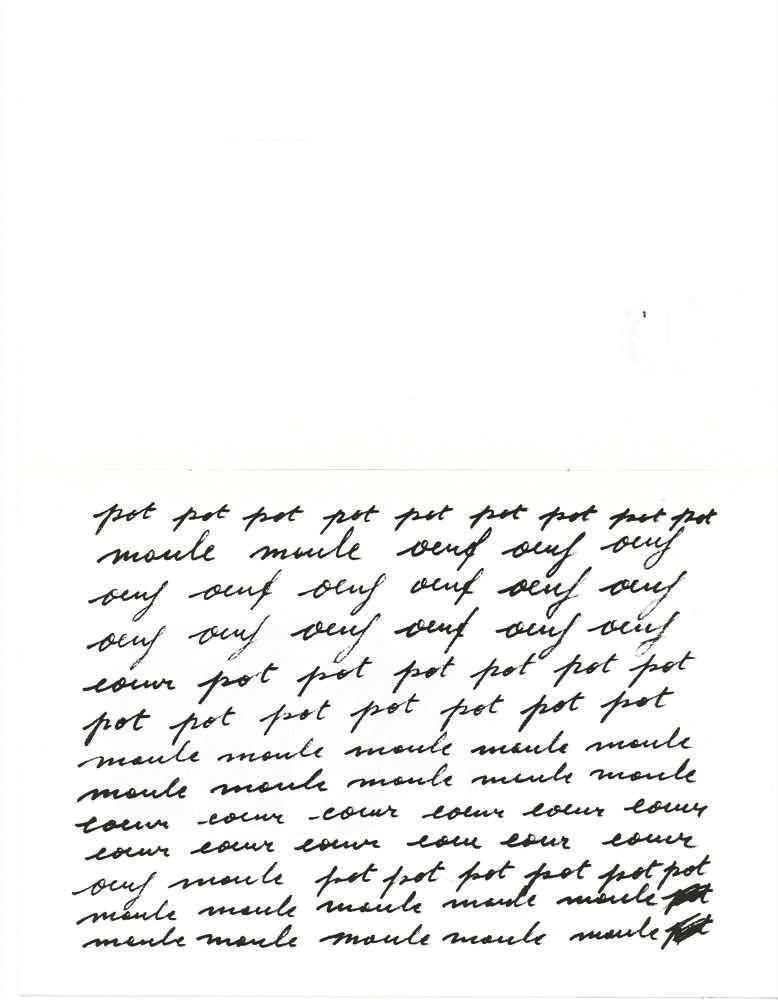 pot pot pot pot pot pot pot pot pot
moule moule oeuf oeuf oeuf
oeuf oeuf oeuf oeuf oeuf oeuf
oeuf oeuf oeuf oeuf oeuf oeuf
coeur pot pot pot pot pot pot
pot pot pot pot pot pot pot
moule moule moule moule moule
moule moule moule moule moule
coeur coeur coeur coeur coeur coeur
coeur coeur coeur coeu coeur coeur
oeuf moule pot pot pot pot pot pot
moule moule moule moule moule
moule moule moule moule moule